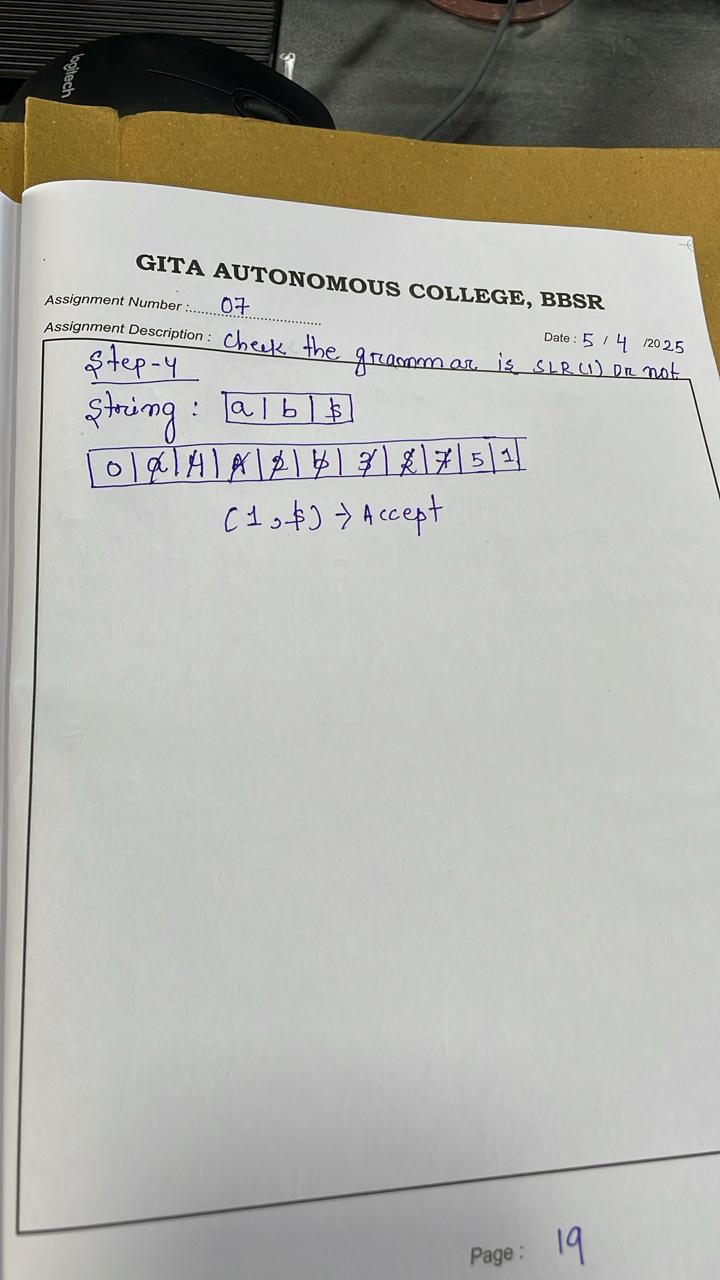 logitech
GITA AUTONOMOUS COLLEGE, BBSR
Assignment Number :..... 07
Date : 5 / 4 /2025
Assignment Description : Check the grammar is SLR(1) or not
Step-4
String : a | b | $
0 | a | 4 | A | 2 | b | 3 | 2 | 7 | 5 | 1
(1,$) → Accept
Page : 19